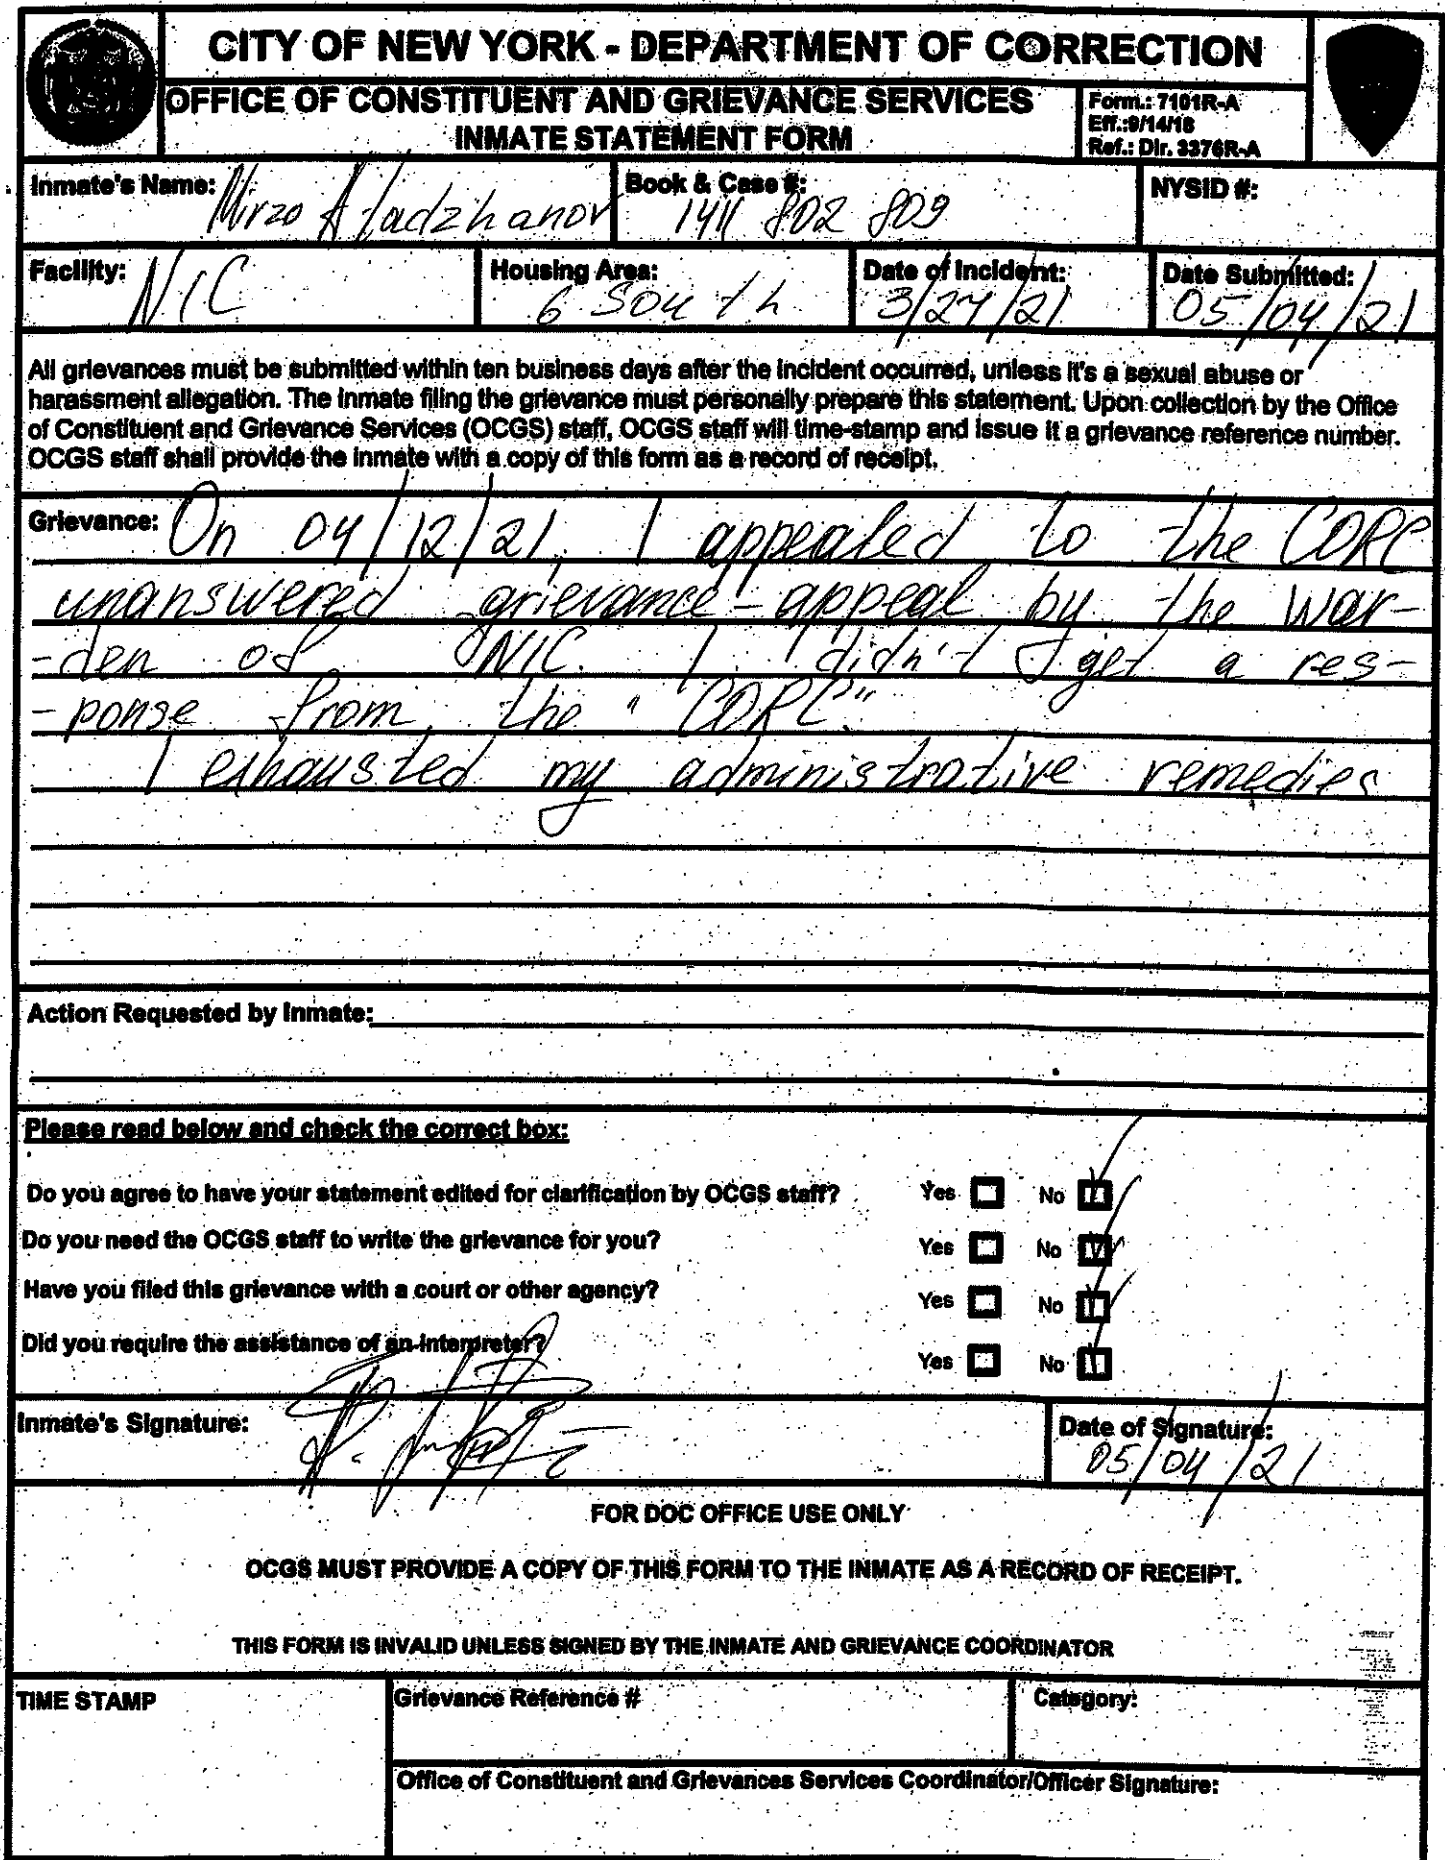 CITY OF NEW YORK - DEPARTMENT OF CORRECTION
OFFICE OF CONSTITUENT AND GRIEVANCE SERVICES
INMATE STATEMENT FORM
Form.: 7101R-A
Eff.:9/14/18
Ref.: Dir. 3376R-A
Inmate's Name: Mirzo Atadzhanov
Book & Case #: 1411 802 809
NYSID #:
Facility: NIC
Housing Area: 6 South
Date of Incident: 3/27/21
Date Submitted: 05/04/21
All grievances must be submitted within ten business days after the incident occurred, unless it's a sexual abuse or
harassment allegation. The inmate filing the grievance must personally prepare this statement. Upon collection by the Office
of Constituent and Grievance Services (OCGS) staff, OCGS staff will time-stamp and issue it a grievance reference number.
OCGS staff shall provide the inmate with a copy of this form as a record of receipt.
Grievance: On 04/12/21, I appealed to the CORC
unanswered grievance-appeal by the War-
-den of NIC. I didn't get a res-
-ponse from the "CORC."
I exhausted my administrative remedies
Action Requested by Inmate:
Please read below and check the correct box:
Do you agree to have your statement edited for clarification by OCGS staff? Yes No
Do you need the OCGS staff to write the grievance for you? Yes No
Have you filed this grievance with a court or other agency? Yes No
Did you require the assistance of an interpreter? Yes No
Inmate's Signature:
Date of Signature: 05/04/21
FOR DOC OFFICE USE ONLY
OCGS MUST PROVIDE A COPY OF THIS FORM TO THE INMATE AS A RECORD OF RECEIPT.
THIS FORM IS INVALID UNLESS SIGNED BY THE INMATE AND GRIEVANCE COORDINATOR
TIME STAMP
Grievance Reference #
Category:
Office of Constituent and Grievances Services Coordinator/Officer Signature: